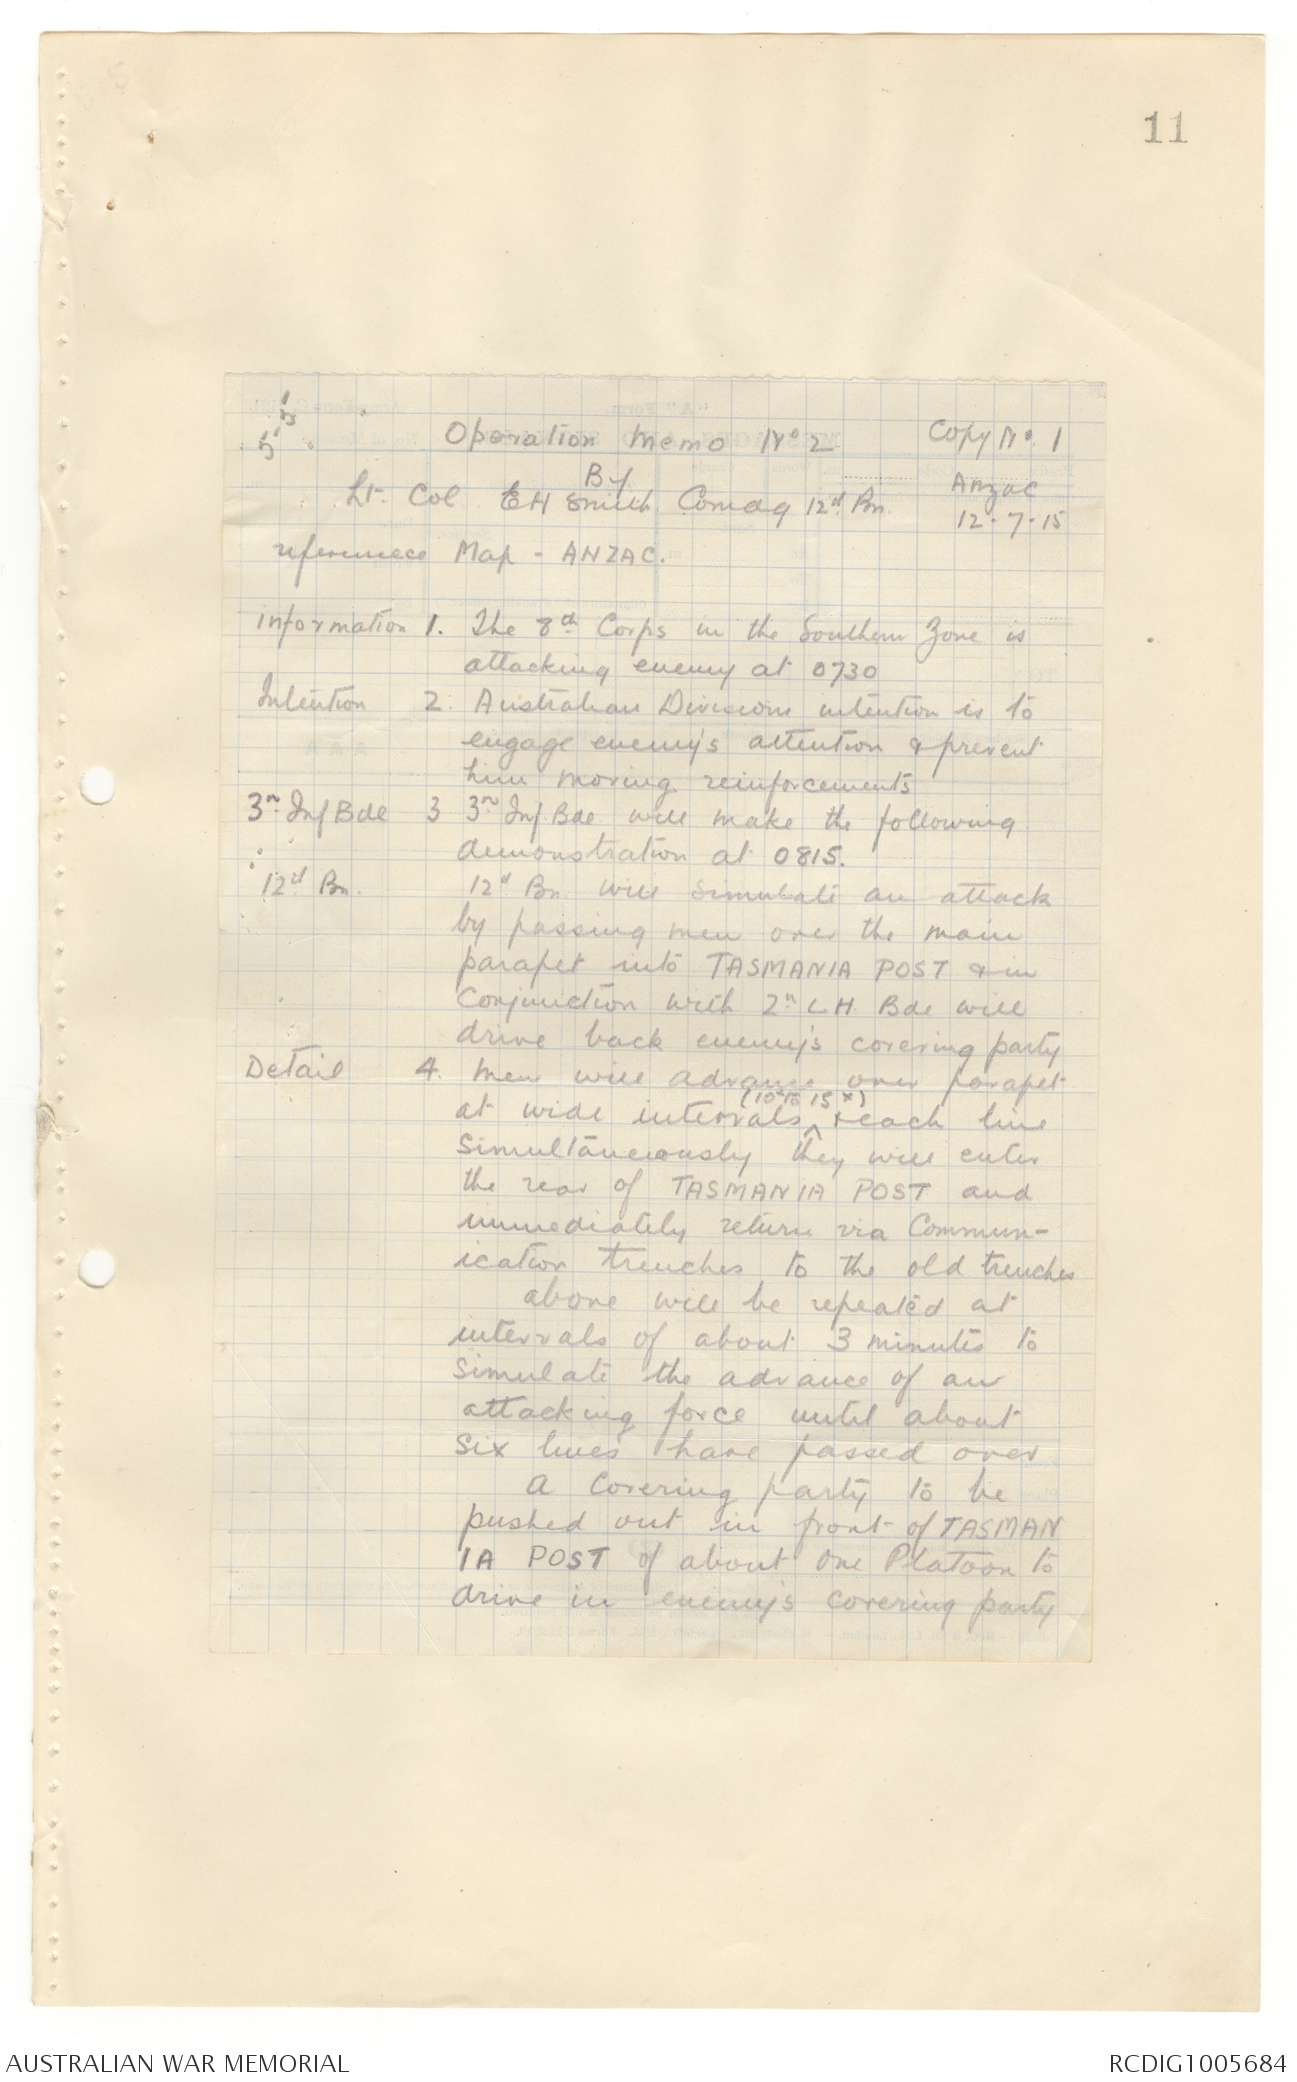 11
Operation Memo No 2
Copy No. 1
By
Lt. Col EH Smith Comdg 12th Bn.
Anzac
12.7.15
referenece Map - ANZAC.
Information 1. The 8th Corps in the Southern Zone is
attacking enemy at 0730
Intention 2. Australian Divisions intention is to
engage enemy's attention & prevent
him moving reinforcements
3rd Inf Bde 3 3rd Inf Bde will make the following
demonstration at 0815.
12th Bn. 12th Bn will simulate an attack
by passing men over the main
parapet into TASMANIA POST & in
conjunction with 2nd L H Bde will
drive back enemy's covering party
Detail 4. Men will advance over parapet
(10x to 15x)
at wide intervals ^ & each line
simultaneously they will enter
the rear of TASMANIA POST and
immediately return via Commun-
ication trenches to the old trenches
above will be repeated at
intervals of about 3 minutes to
simulate the advance of an
attacking force until about
six lines have passed over
A Covering party to be
pushed out in front of TASMAN
IA POST of about one Platoon to
drive in enemy's covering party
AUSTRALIAN WAR MEMORIAL
RCDIG1005684